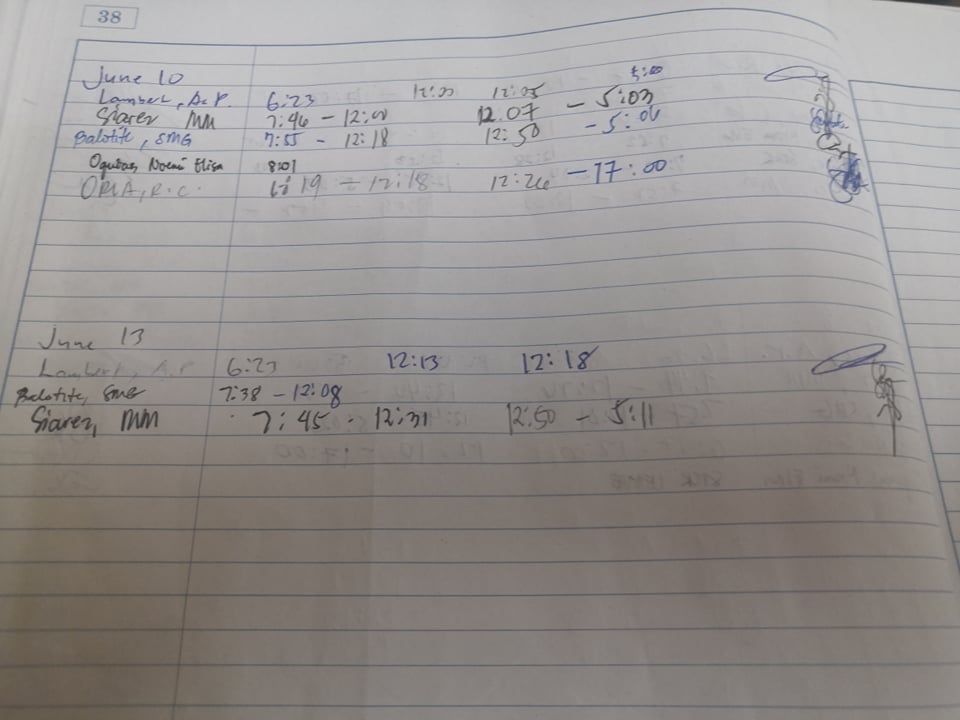 38
June 10
Lambert, A.P. 6:23 12:00 12:05 5:00
Siarez MM 7:46 - 12:00 12:07 - 5:03
Balotite, SMG 7:55 - 12:18 12:50 - 5:00
Noemi Elisa 8:01
ORIA, R.C. 6:19 - 12:18 12:26 - 17:00
June 13
Lambert, A.P 6:23 12:13 12:18
Balotite, SMG 7:38 - 12:08
Siarez, MM 7:45 - 12:31 12:50 - 5:11